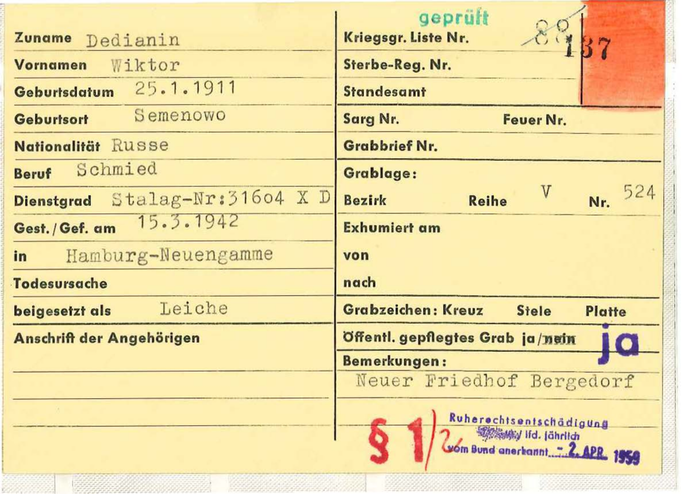 Zuname Dedianin
Vornamen Wiktor
Geburtsdatum 25.1.1911
Geburtsort Semenowo
Nationalität Russe
Beruf Schmied
Dienstgrad Stalag-Nr:31604 X D
Gest./Gef. am 15.3.1942
in Hamburg-Neuengamme
Todesursache
beigesetzt als Leiche
Anschrift der Angehörigen
geprüft
Kriegsgr. Liste Nr. 88 137
Sterbe-Reg. Nr.
Standesamt
Sarg Nr. Feuer Nr.
Grabbrief Nr.
Grablage:
Bezirk Reihe V Nr. 524
Exhumiert am
von
nach
Grabzeichen: Kreuz Stele Platte
Öffentl. gepflegtes Grab ja/nein ja
Bemerkungen:
Neuer Friedhof Bergedorf
§ 1/2
Ruherechtsentschädigung
/ lfd. jährlich
vom Bund anerkannt - 2. APR. 1959